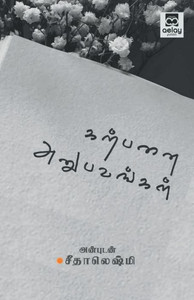 aelay
கற்பனை
அனுபவங்கள்
அன்புடன்
சீதாலெஷ்மி